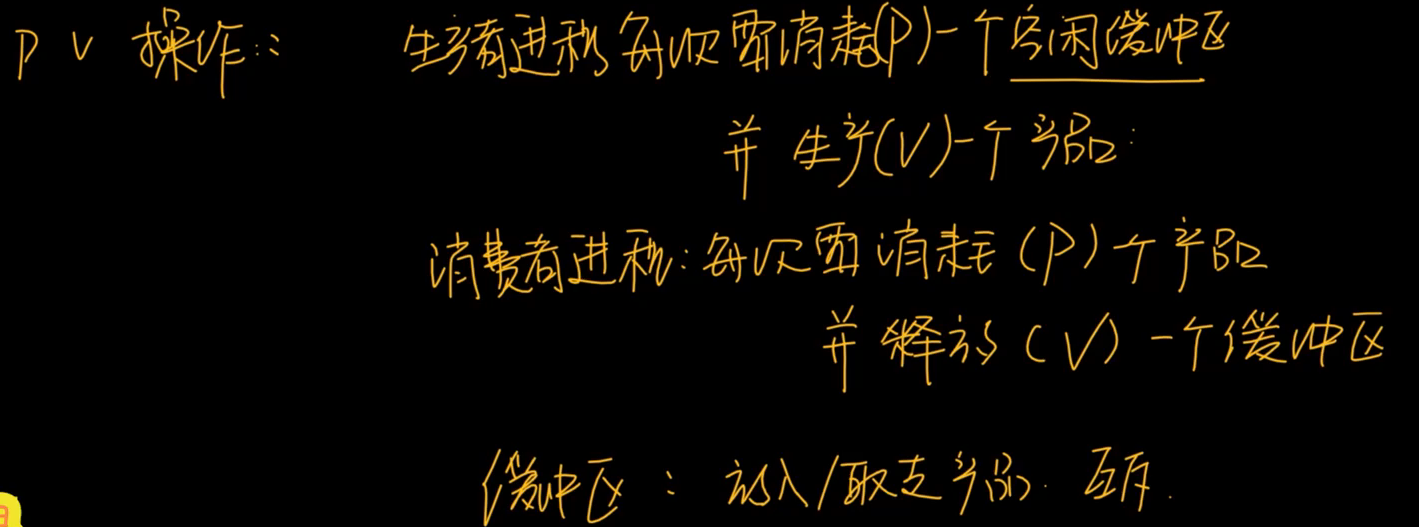 P V 操作:: 生产者进程每次要消耗(P)一个空闲缓冲区
并 生产(V)一个产品.
消费者进程: 每次要消耗(P)个产品
并释放(V)一个缓冲区
缓冲区: 放入/取走产品. 互斥.